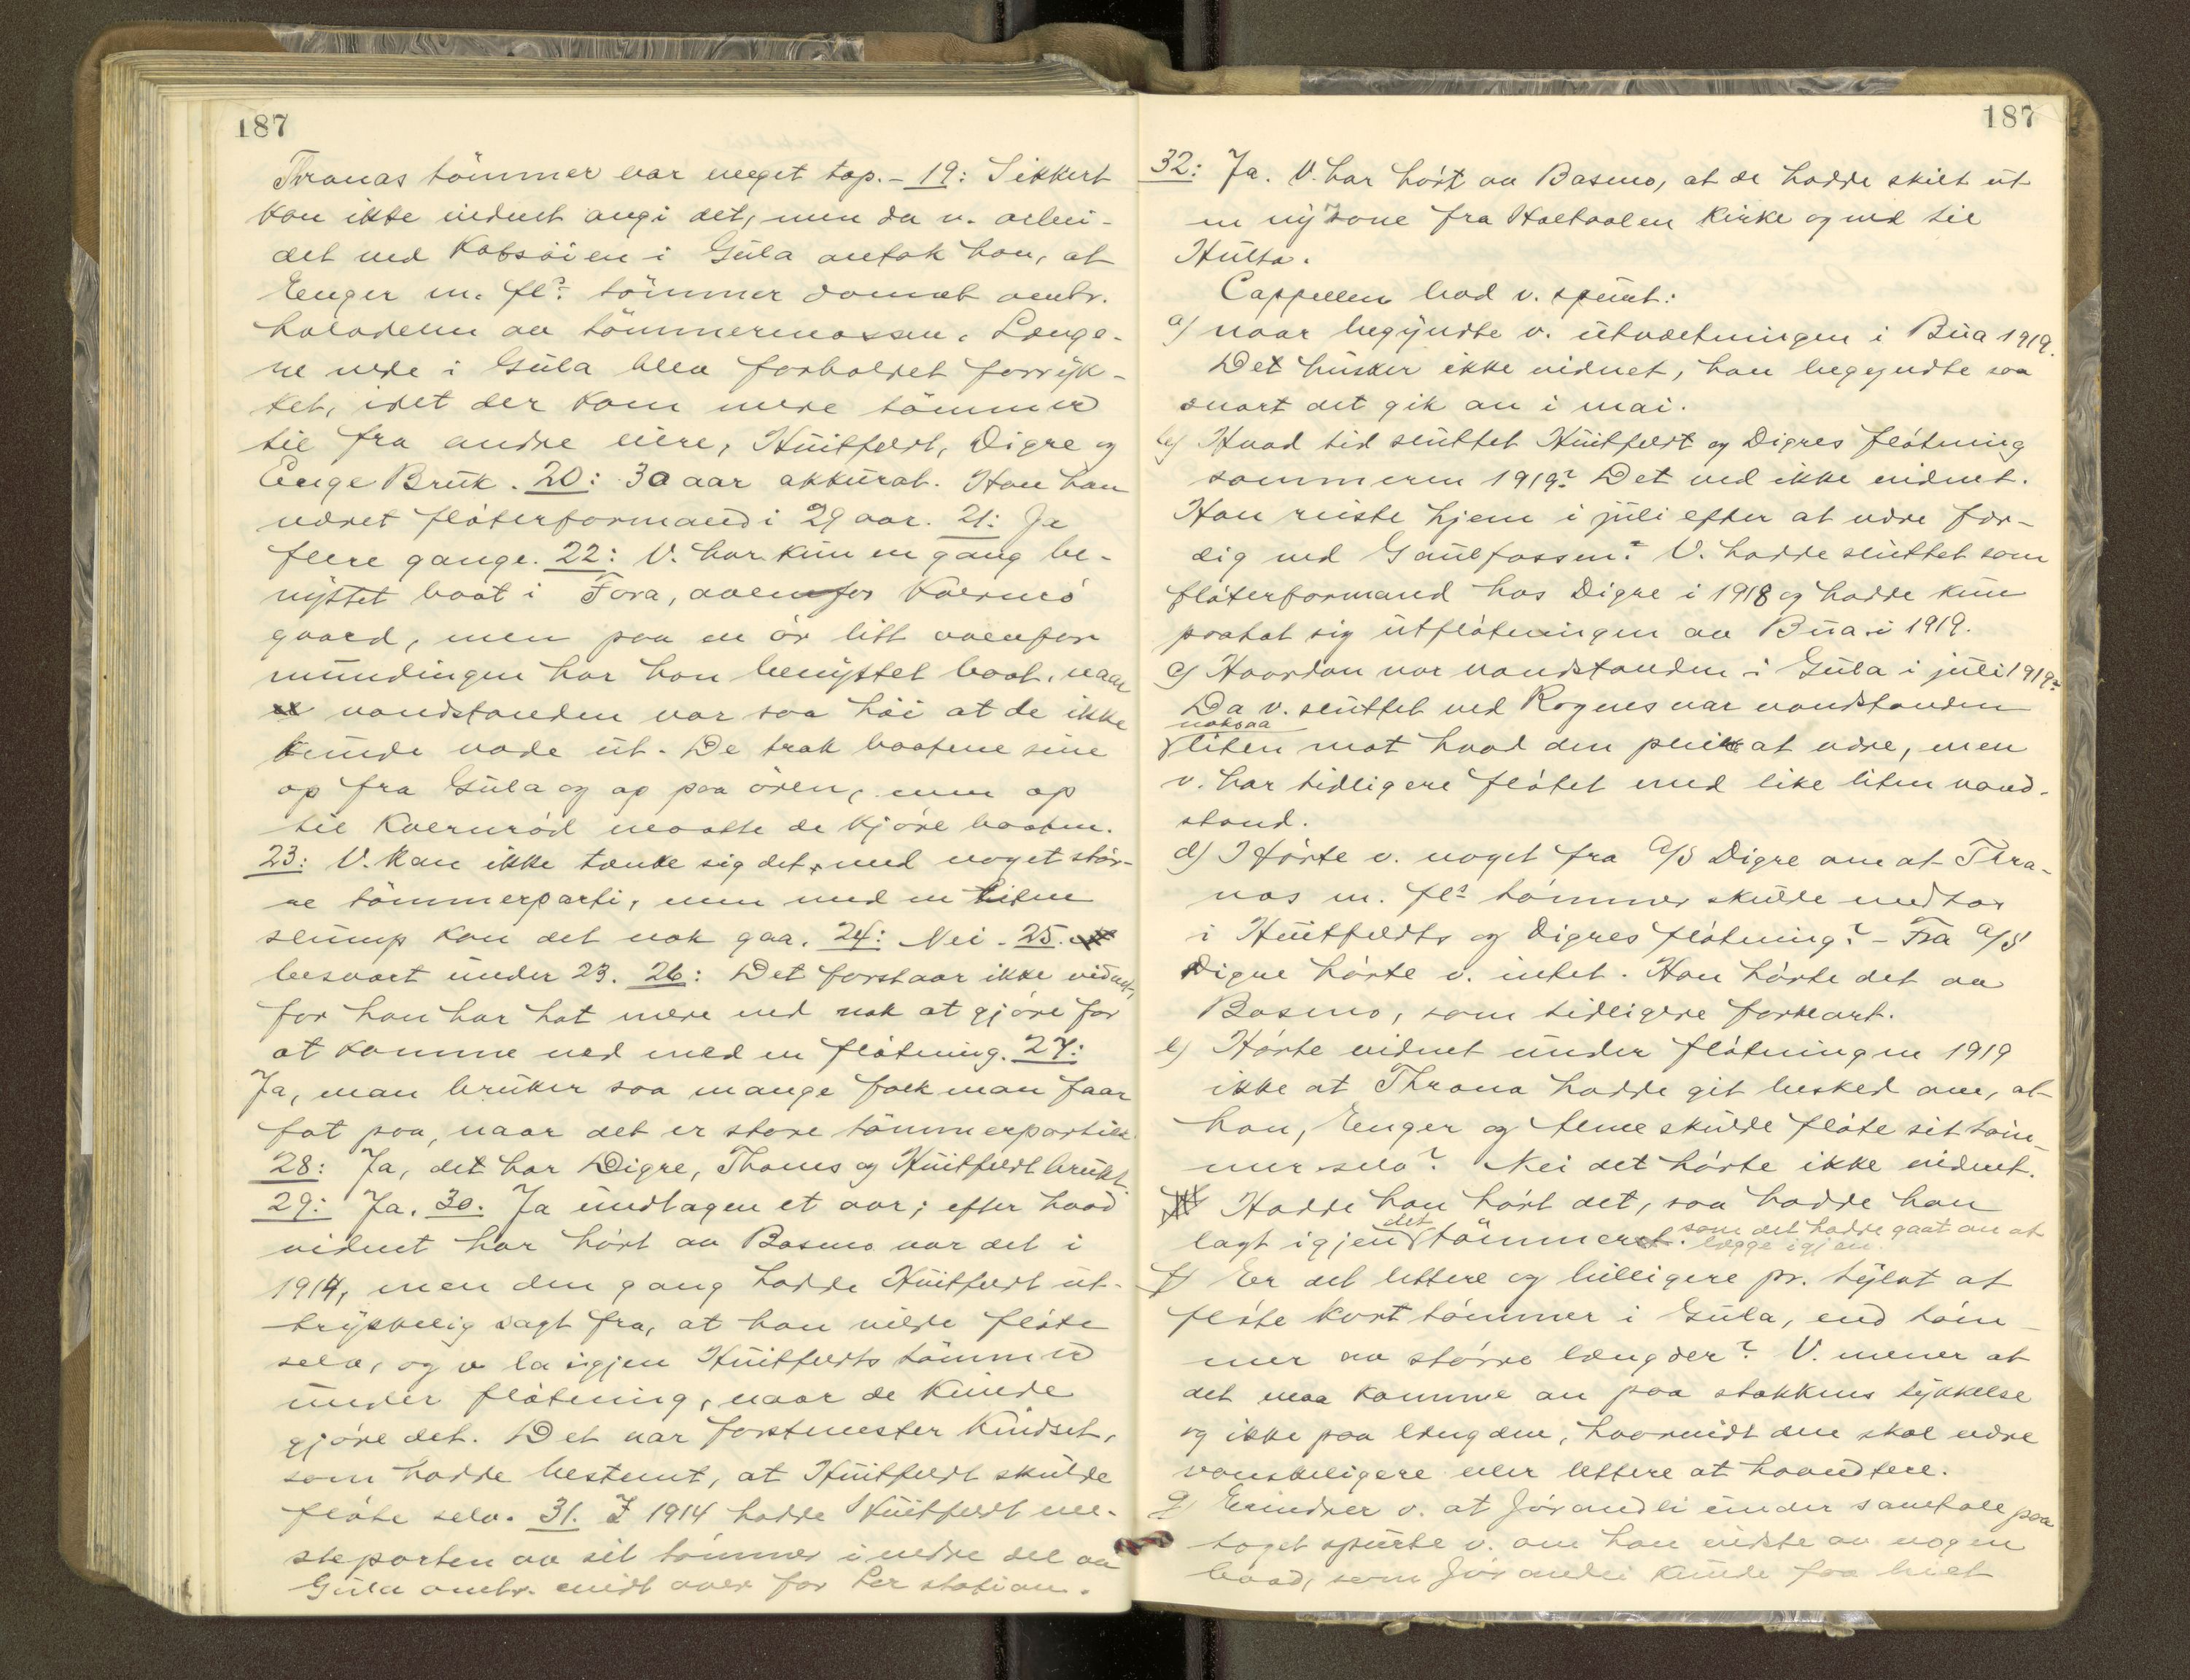 187
Thranas tömmer var meget tap. - 19: Sikkert
kan ikke vidnet angi det, men da v. arbei-
det ved Kobsöien i Gula antok han, at
Enger m. fl's tömmer dannet omtr.
halvdelen av tömmermassen. Længe-
re nede i Gula blev forholdet forryk-
ket, idet der kom mere tömmer
til fra andre eiere, Huitfeldt, Digre og
Enge Bruk. 20: 30 aar akkurat. Han har
været fløterformand i 29 aar. 21: Ja
flere gange. 22: V. har kun en gang be-
nyttet baat i Fora, ovenfor Kvernrö
gaard, men paa en ör litt ovenfor
mundingen har han benyttet baat, naar
vandstanden var saa höi at de ikke
kunde vade ut. De trak baatene sine
op fra Gula og op paa ören, men op
til Kvernröd maatte de kjöre baaten.
23: V. kan ikke tænke sig det, med noget stör-
re tömmerparti, men med en liten
slump kan det nok gaa. 24: Nei. 25.
besvart under 23. 26: Det forstaar ikke vidnet,
for han har hat mere end nok at gjöre for
at komme ned med en flötning. 27:
Ja, man bruker saa mange folk man faar
fat paa, naar det er store tömmerpartier.
28: Ja, det har Digre, Thams og Huitfeldt brukt.
29: Ja. 30. Ja undtagen et aar; efter hvad
vidnet har hört av Basmo var det i
1914, men den gang hadde Huitfeldt ut-
trykkelig sagt fra, at han vilde flöte
selv, og v la igjen Huitfeldts tömmer
under flötning, naar de kunde
gjöre det. Det var forstmester Kindset,
som hadde bestemt, at Huitfeldt skulde
flöte selv. 31. I 1914 hadde Huitfeldt me-
steparten av sit tömmer i nedre del av
Gula omtr. midt over for Ler station.
187
32: Ja. V. har hört av Basmo, at de hadde skilt ut
en ny zone fra Holtaalen kirke og ned til
Hulta.
Cappelen bad v. spurt:
a) naar begyndte v. utvæltningen i Bua 1919.
Det husker ikke vidnet, han begyndte saa
snart det gik an i mai.
b) Hvad tid sluttet Huitfeldt og Digres flötning
sommeren 1919? Det ved ikke vidnet.
Han reiste hjem i juli efter at være fær-
dig ved Gaulfossen. V. hadde sluttet som
flöterformand hos Digre i 1918 og hadde kun
paatat sig utflötningen av Bua i 1919.
c) Hvordan var vandstanden i Gula i juli 1919?
Da v. sluttet ved Rognes var vandstanden
noksaa
liten mot hvad den pleiet at være, men
v. har tidligere flötet med like liten vand-
stand.
d) Hörte v. noget fra A/S Digre om at Thra-
nas m. fl's tömmer skulde medtas
i Huitfeldts og Digres flötning? - Fra A/S
Digre hörte v. intet. Han hörte det av
Basmo, som tidligere forklart.
e) Hörte vidnet under flötningen 1919
ikke at Thrana hadde git besked om, at
han, Enger og Aune skulde flöte sit töm-
mer selv? Nei det hörte ikke vidnet.
Hadde han hört det, saa hadde han
lagt igjen det tömmer som det hadde gaat an at
lægge igjen.
f) Er det lettere og billigere pr. tylvt at
flöte kort tömmer i Gula, end töm-
mer av större længder? V. mener at
det maa komme an paa stokkens tykkelse
og ikke paa længden, hvorvidt den skal være
vanskeligere eller lettere at haandtere.
g) Erindrer v. at Jörandli under samtale paa
toget spurte v. om han vidste av nogen
baad, som Jörandli kunde faa leiet